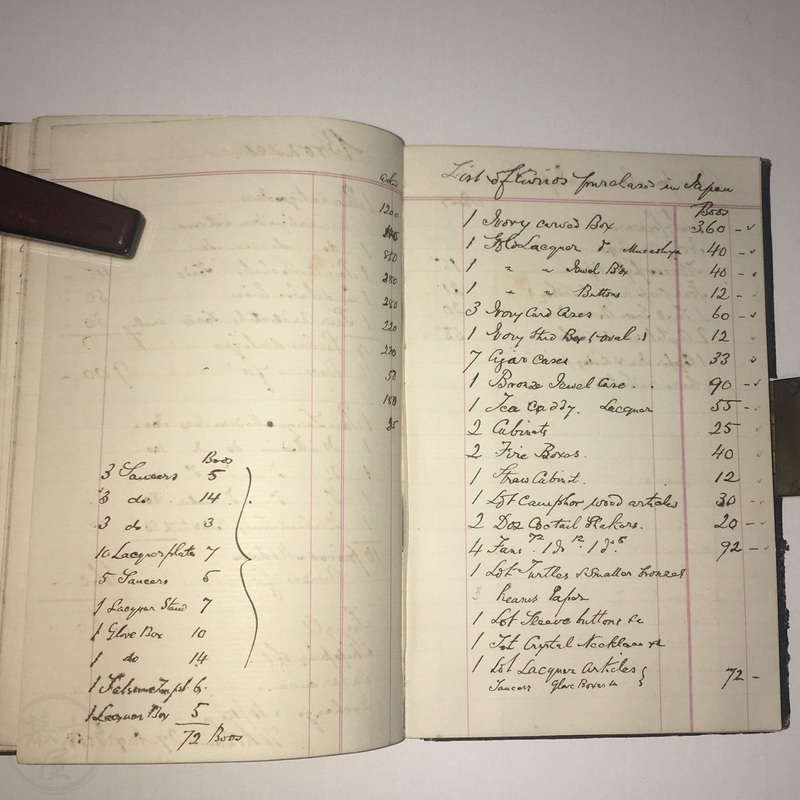 1200
280
280
220
220
50
150
35
Boos
3 Saucers 5
3 do 14
3 do 3
10 Lacquer plates 7
5 Saucers 6
1 Lacquer Stand 7
1 Glove Box 10
1 do 14
1 6
1 Lacquer Box 5
72 Boos
List of Curios purchased in Japan
Boos
1 Ivory carved Box 360 -
1 Gold Lacquer 40 -
1 " " Jewel Box .. 40 -
1 " " Buttons 12 -
3 Ivory Card Cases 60 -
1 Ivory Box (oval) 12
7 Cigar cases 33
1 Bronze Jewel Case . . 90 -
1 Tea Caddy. Lacquer 55 -
2 Cabinets 25
2 Fire Boxes. 40
1 Straw Cabinet. 12
1 Lot Camphor wood articles 30 -
2 Doz Coctail Shakers. 20 -
4 Fans 72. 1 do 12. 1 do 8 92 -
1 Lot Turtles & Smaller bronzes
3 Reams Paper
1 Lot Sleeve buttons &c
1 Crystal Necklace
1 Lot Lacquer Articles } 72 -
Saucers Glove Boxes &c